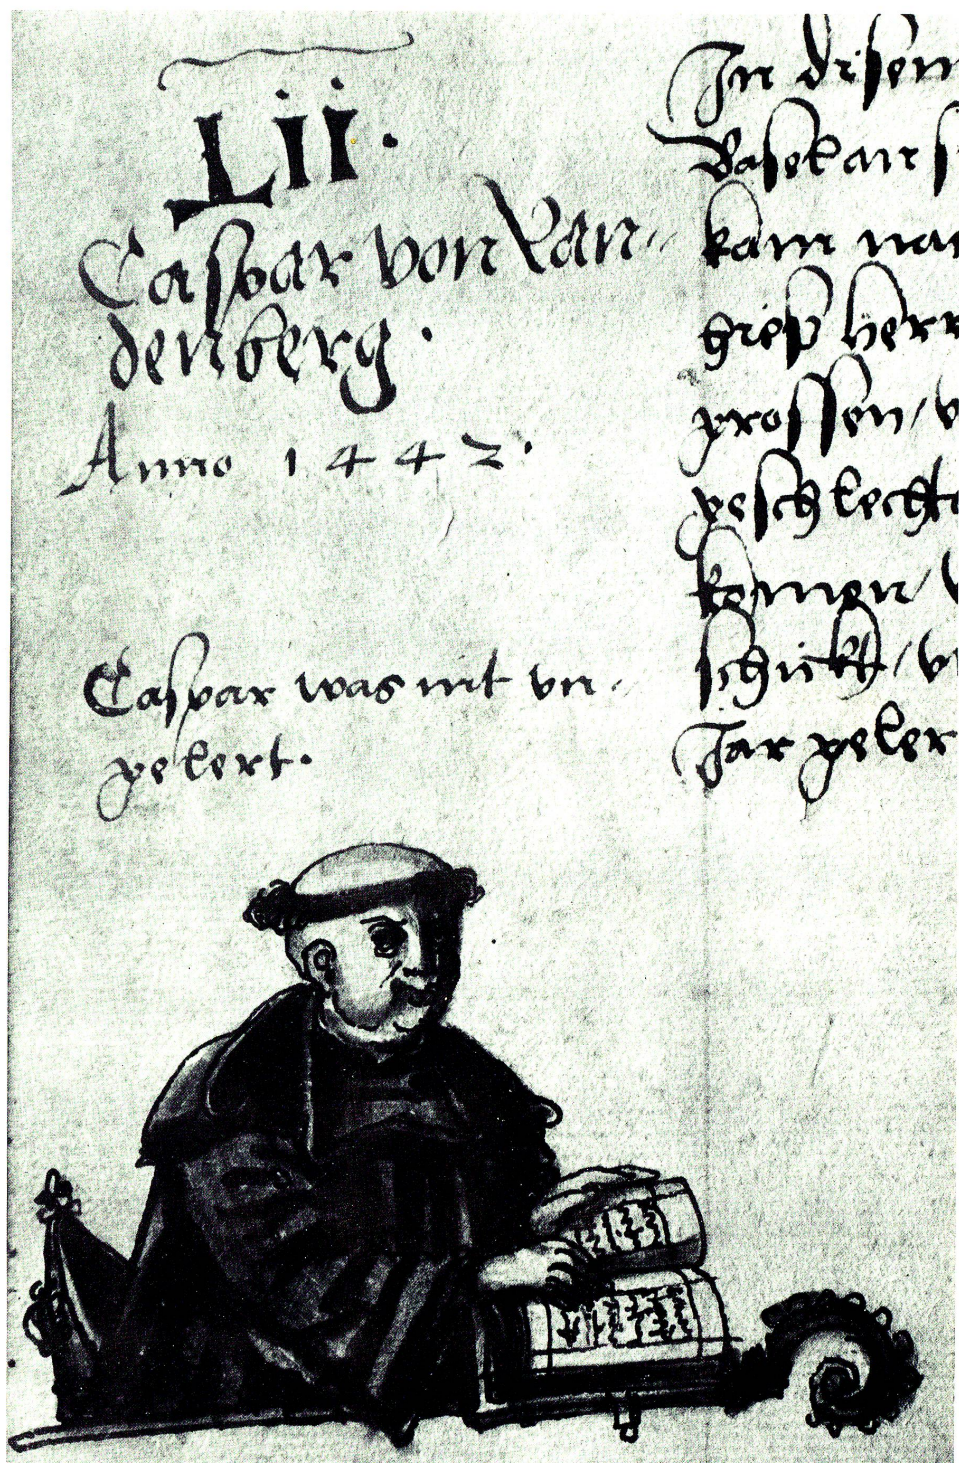 Lii.
Caspar von Lan=
denberg.
Anno 1442.
Caspar was nit vn=
gelert.
In disem
kam
herr
grossen/ v
geschlecht
komen/ v
schickt/ v
Jar geler